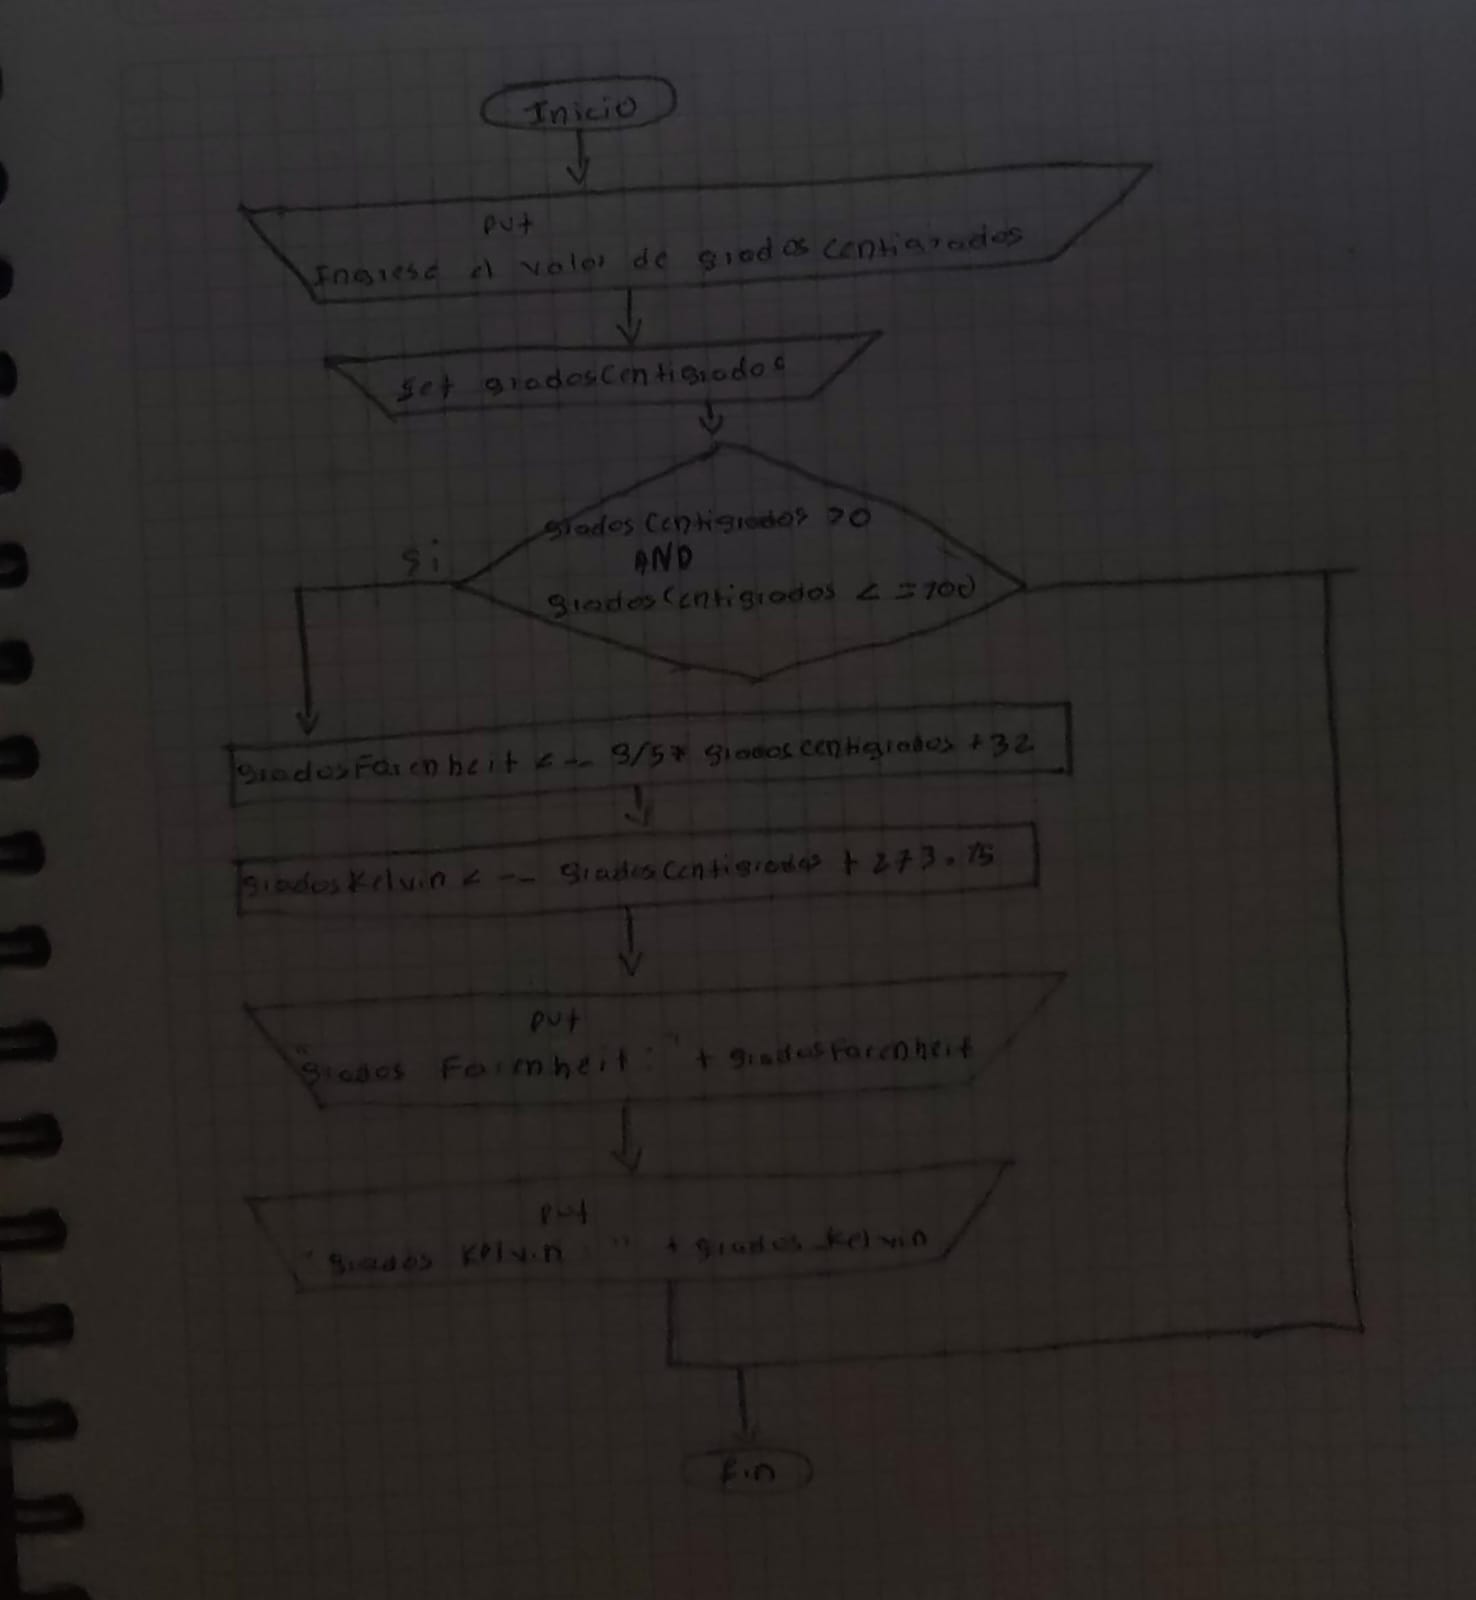 Inicio
put
Ingrese el valor de grados centigrados
get gradosCentigrados
gradosCentigrados >0
AND
gradosCentigrados <=100
si
gradosFarenheit <-- 9/5* gradoscentigrados +32
gradosKelvin <-- gradosCentigrados + 273.15
put
"grados Farenheit: " + gradosFarenheit
put
"grados Kelvin: " + grados Kelvin
Fin